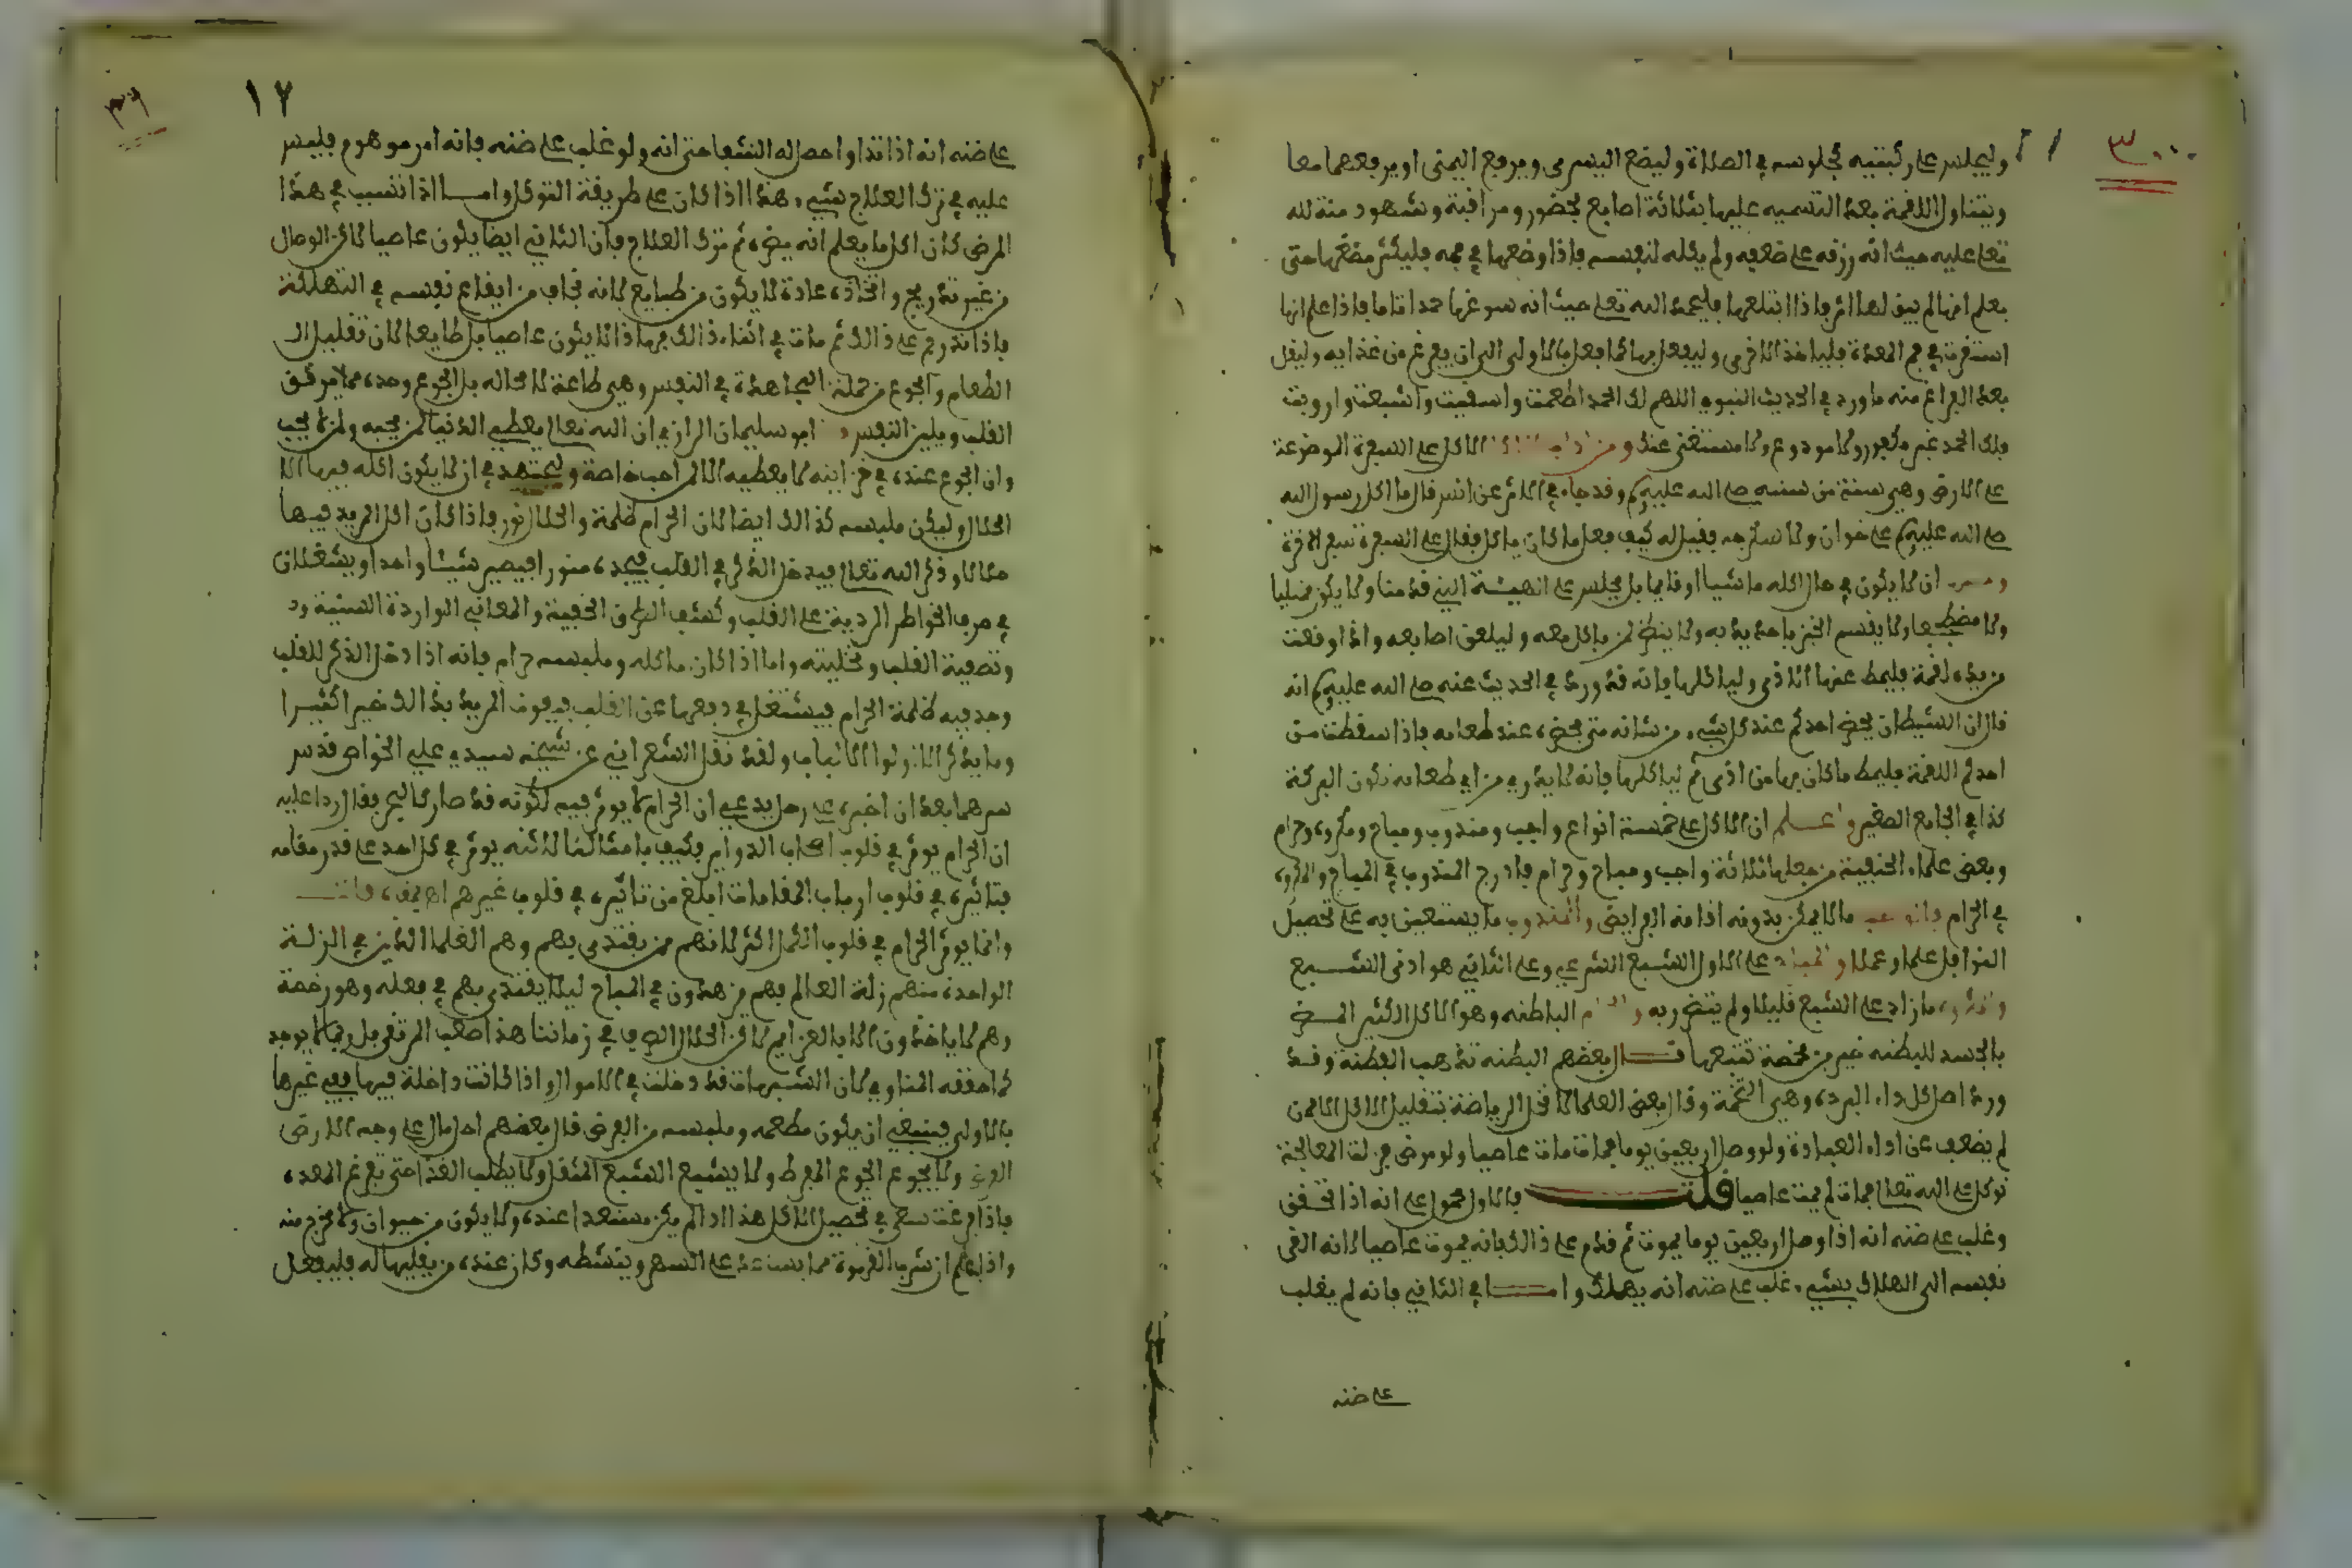 ٣٠
وليجلس على ركبتيه كجلوسه في الصلاة وليضع اليسرى ويرفع اليمنى او يرفعهما معا
ويتناول اللقمة بعد التسميه عليها بثلاثة اصابع بحضور ومراقبة وشهود منة لله
تعلى عليه حيث انه رزقه على ضعفه ولم يكله لنفسه فاذا وضعها في فمه فليكثر مضغها حتى
يعلم انها لم يبق لها اثر فاذا ابتلعها فليحمد الله تعلى حيث انه سوغها حمدا تاما فاذا علم انها
استقرت في فم المعدة فلياخذ الاخرى وليفعل بها كما فعل بالاولى الى ان يفرغ من غذايه وليقل
بعد الفراغ منه ما ورد في الحديث النبوي اللهم لك الحمد اطعمت واسقيت واشبعت وارويت
فلك الحمد غير مكفور ولا مودوع ولا مستغنى عنك ومن الاكل على السفرة الموضوعة
على الارض وهي سنة من سننه صلى الله عليه وقد جاء في الاثر عن انس قال ما اكل رسول الله
صلى الله عليه على خوان ولا سكرجه فقيل له كيف فعل ما كان ياكل فقال على السفرة سفر الاخرة
ان لا يكون في حال اكله ماشيا او قايما بل يجلس على الهيئة التي قدمنا ولا يكن
ولا مضطجعا ولا يقسم الخبز باحد يديه ولا ينظر لمن ياكل معه وليلعق اصابعه واذا وقعت
من يده لقمة فليمط عنها الاذى ولياكلها فانه قد ورد في الحديث عنه صلى الله عليه انه
قال ان الشيطان يحضر احدكم عند كل شيء من شانه حتى يحضره عند طعامه فاذا سقطت من
احدكم اللقمة فليمط ما كان بها من اذى ثم لياكلها فانه لا يدري من اي طعامه تكون البركة
كذا في الجامع الصغير واعلم ان الاكل على خمسة انواع واجب ومندوب ومباح ومكروه وحرام
وبعض علماء الحنفية من جعلها ثلاثة واجب ومباح وحرام فادرج المندوب في المباح والمكروه
في الحرام فالواجب ما لا يمكن بدونه اقامة الفرايض والمندوب ما يستعين به على تحصيل
النوافل علما وعملا والمباح على الاول الشبع الشرعي وعلى الثاني هو ادنى الشبع
والمكروه ما زاد على الشبع قليلا ولم يتضرر به والحرام البطنه وهو الاكل الكثير المضر
بالجسد للبطنه غير من مخمصة تتبعها قال بعضهم البطنه تذهب الفطنة وقد
ورد اصل كل داء البردة وهي التخمة وقال بعض العلما لا تحل الرياضة بتقليل الاكل الا من
لم يضعف عن اداء العبادة ولو وصل اربعين يوما فمات مات عاصيا ولو مرض فترك المعالجة
توكلا على الله تعالى فمات لم يمت عاصيا قلت فالاول محمول على انه اذا تحقق
وغلب على ضنه انه اذا وصل اربعين يوما يموت ثم قدم على ذالك فانه يموت عاصيا لانه القى
نفسه الى الهلاك بشيء غلب على ضنه انه يهلك واما في الثاني فانه لم يغلب
على ضنه
٣٩
١٧
على ضنه انه اذا تداوا حصل له الشفا حتى انه ولو غلب على ضنه فانه امر موهوم فليس
عليه في ترك العلاج شيء هذا اذا كان على طريقة التوكل واما اذا تسبب في هذا
المرض كان اكل ما يعلم انه يضره ثم ترك العلاج فان الثاني ايضا يكون عاصيا لاكن الوصال
من غير تدريج واتخاذه عادة لا يكون من طبايع لانه يخاف من ايقاع نفسه في التهلكة
فاذا تدرج على ذالك ثم مات في اثناء ذالك فهاذا لا يكون عاصيا بل طايعا لان تقليل الـ
الطعام والجوع من جملة المجاهدة في النفس وهي طاعة لا محاله بل الجوع وحده مما يرقق
القلب ويلين النفس ابو سليمان الرازي ان الله تعالى يعطي الدنيا لمن يحبه ولمن لا يحب
وان الجوع عنده في خزاينه لا يعطيه الا لمن احب خاصة وليجتهد في ان لا يكون اكله فيها الا
الحلال وليكن ملبسه كذالك ايضا لان الحرام ظلمة والحلال نور فاذا كان اكل المريد فيها
حلالا وذكر الله تعالى فيدخل الذكر في القلب فيجده منورا فيصير شيئا واحدا ويشتغلان
في صرف الخواطر الردية على القلب وكشف الطرق الخفية والمعاني الواردة السنية ود
وتصفية القلب وتخليته واما اذا كان ماكله وملبسه حرام فانه اذا دخل الذكر للقلب
وجد فيه ظلمة الحرام فيشتغل في دفعها عن القلب فيفوت المريد بذالك خيرا كثيرا
وما يذكر الا اولوا الالباب ولقد نقل الشعراني عن شيخه سيدي علي الخواص قدس
سرهما بعد ان اخبره على رجل يدعي ان الحرام لا يوثر فيه لكونه قد صار كالبحر فقال ردا عليه
ان الحرام يوثر في قلوب اصحاب الدواير فكيف بامثالنا لاكنه يوثر في كل احد على قدر مقامه
فتاثيره في قلوب ارباب المقامات ابلغ من تاثيره في قلوب غيرهم اه
وانما يوثر الحرام في قلوب الكمل اكثر لانهم ممن يقتدى بهم وهم العلما الذين في الزلة
الواحدة منهم زلة العالم بهم يزهدون في المباح ليلا يقتدى بهم في فعله وهو رخصة
وهم لا ياخذون الا بالعزايم لاكن الحلال الصرف في زماننا هذا صعب المرتقى بل ربما لا يوجد
كما حققه المناوي لان الشبهات قد دخلت في الاموال واذا كانت داخلة فيها ففي غيرها
بالاولى فينبغي ان يكون مطعمه وملبسه من القرض قال بعضهم احل مال على وجه الارض
القرض ولا يجوع الجوع المفرط ولا يشبع الشبع المثقل ولا يطلب الغذا حتى تفرغ المعده
فاذا فرغت سعى في تحصيل الاكل هذا اذا لم يكن مستعدا عنده ولا يكون من حيوان ولا مخرج منه
واذا علم ان شرب القهوة مما يساعد على السهر وينشطه وكان عنده من يغليها له فليفعل